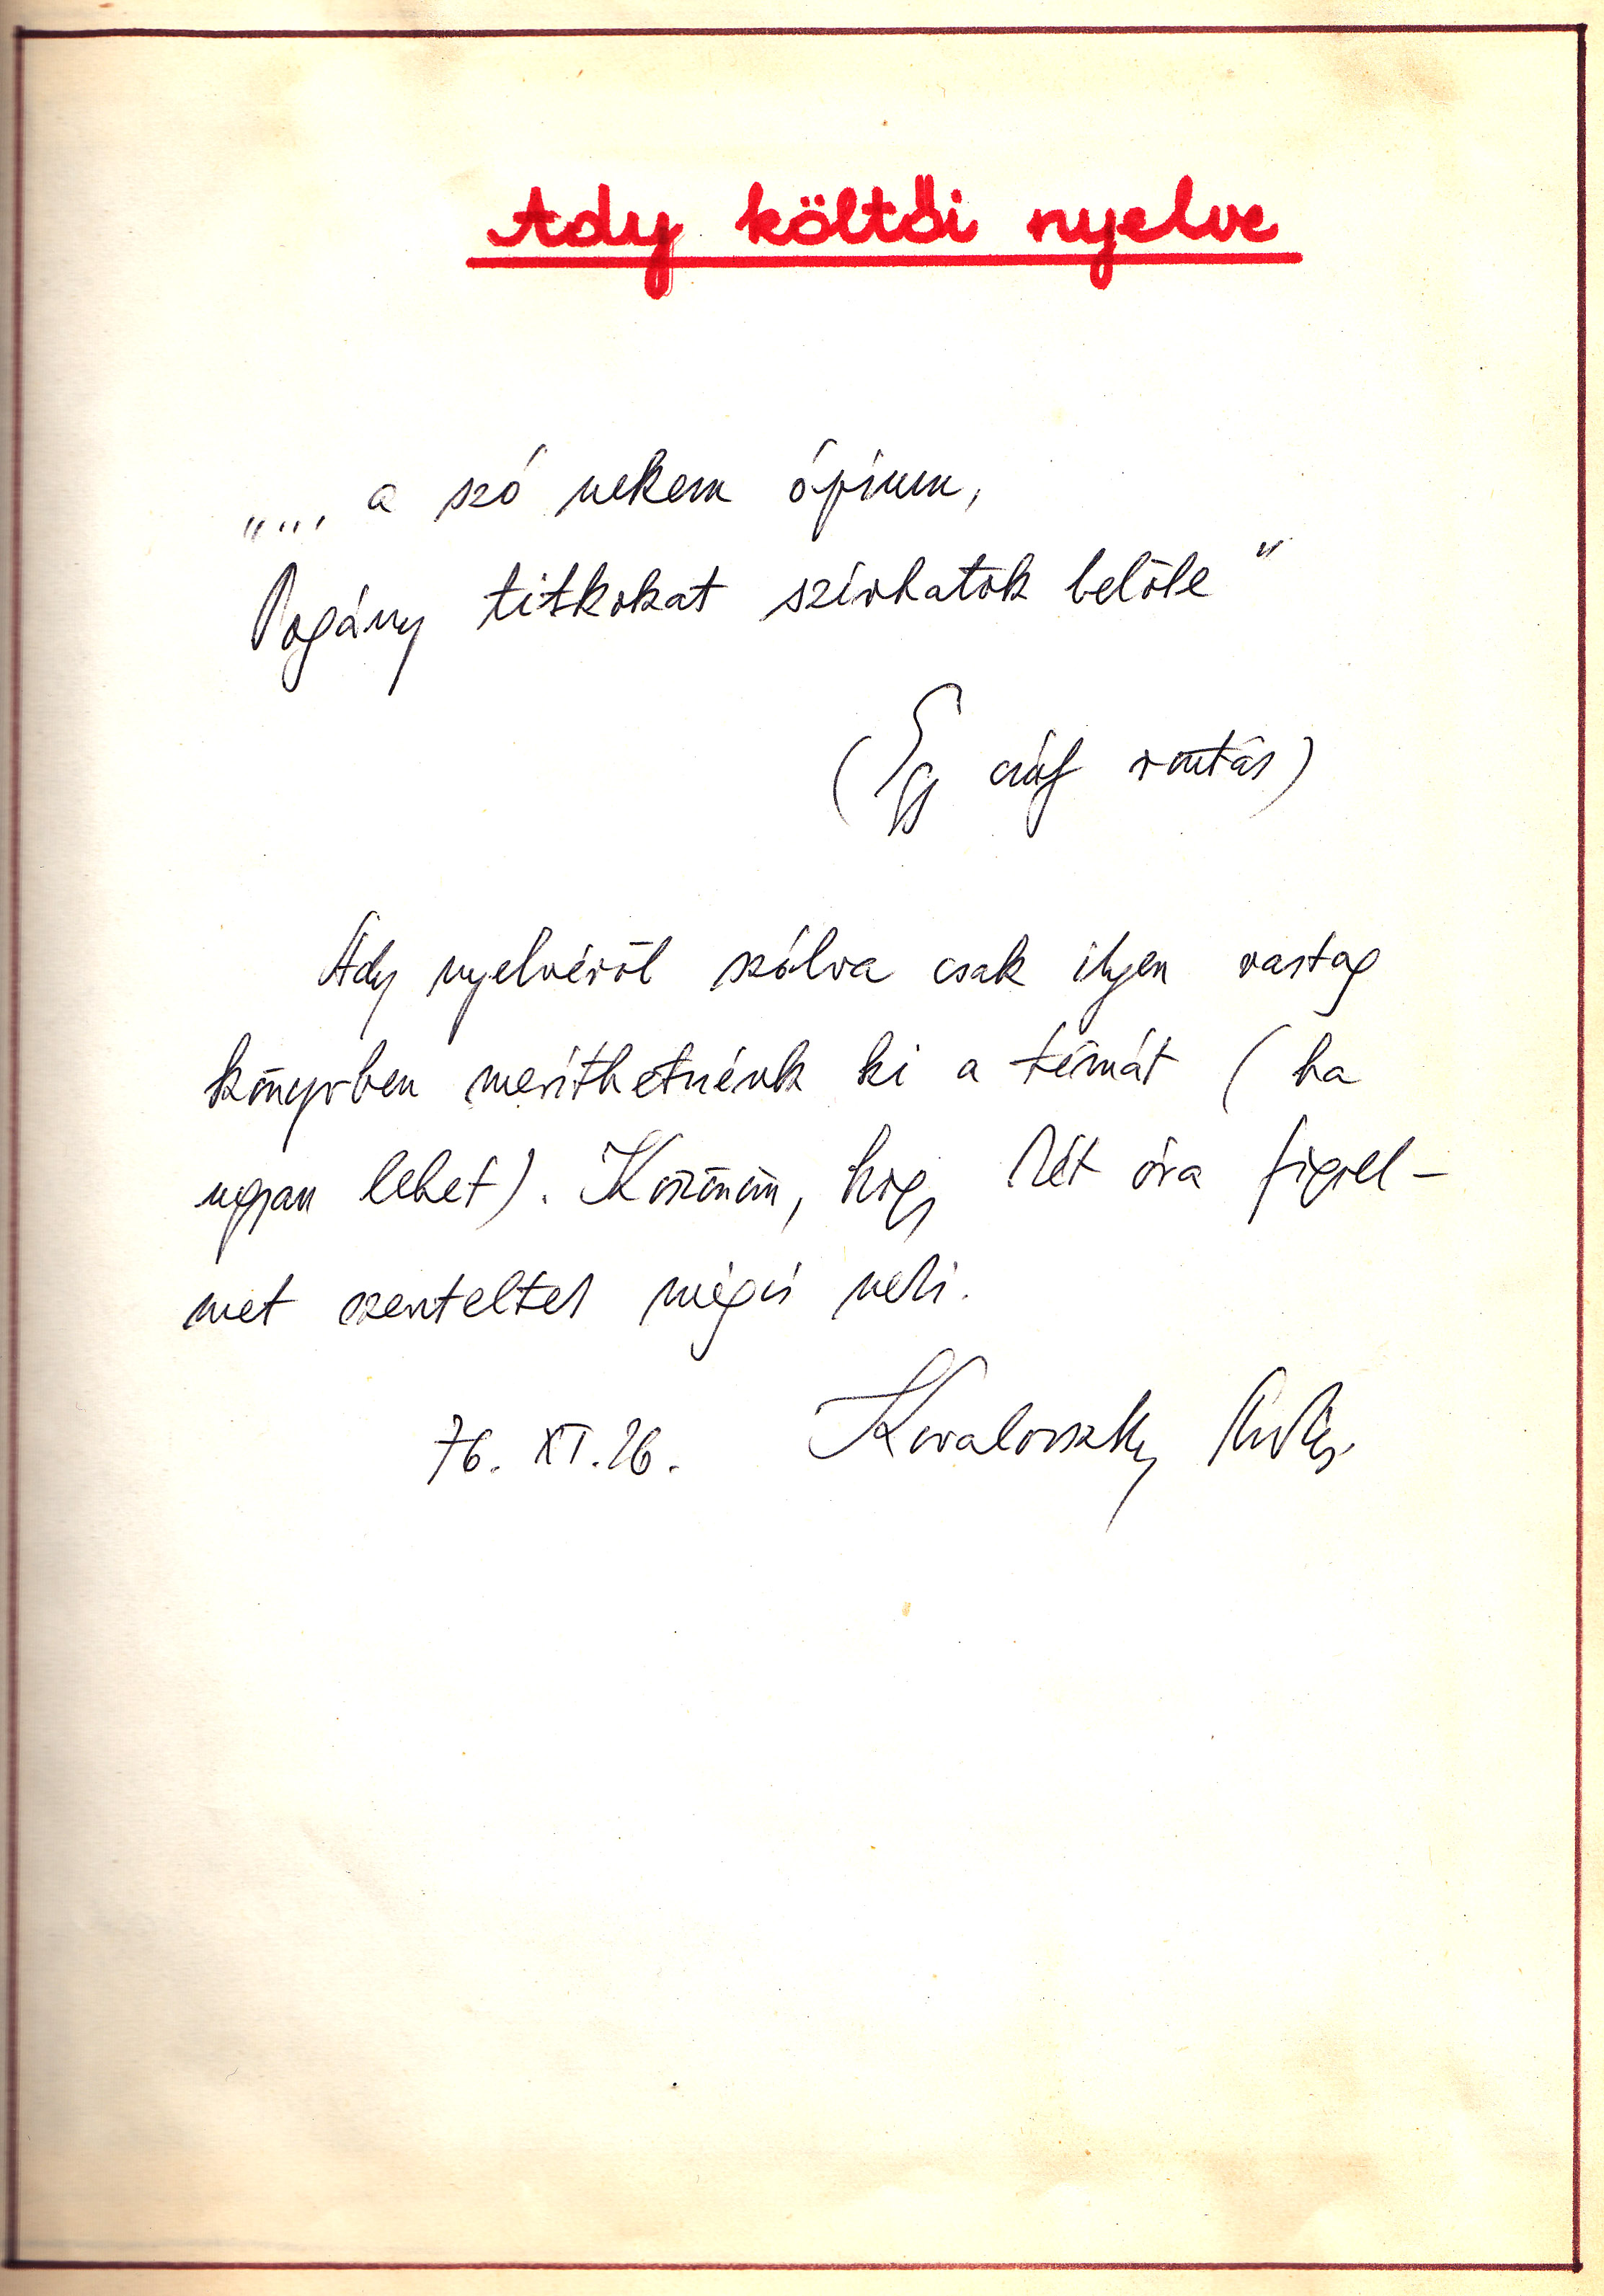 Ady költői nyelve
„… a szó nekem ópium,
Pogány titkokat szívhatok belőle"
(Egy csúf rontás)
Ady nyelvéről szólva csak ilyen vastag
könyvben meríthetnénk ki a témát (ha
ugyan lehet). Köszönöm, hogy két óra figyel-
met szenteltek mégis neki.
76. XI. 26. Kovalovszky Miklós